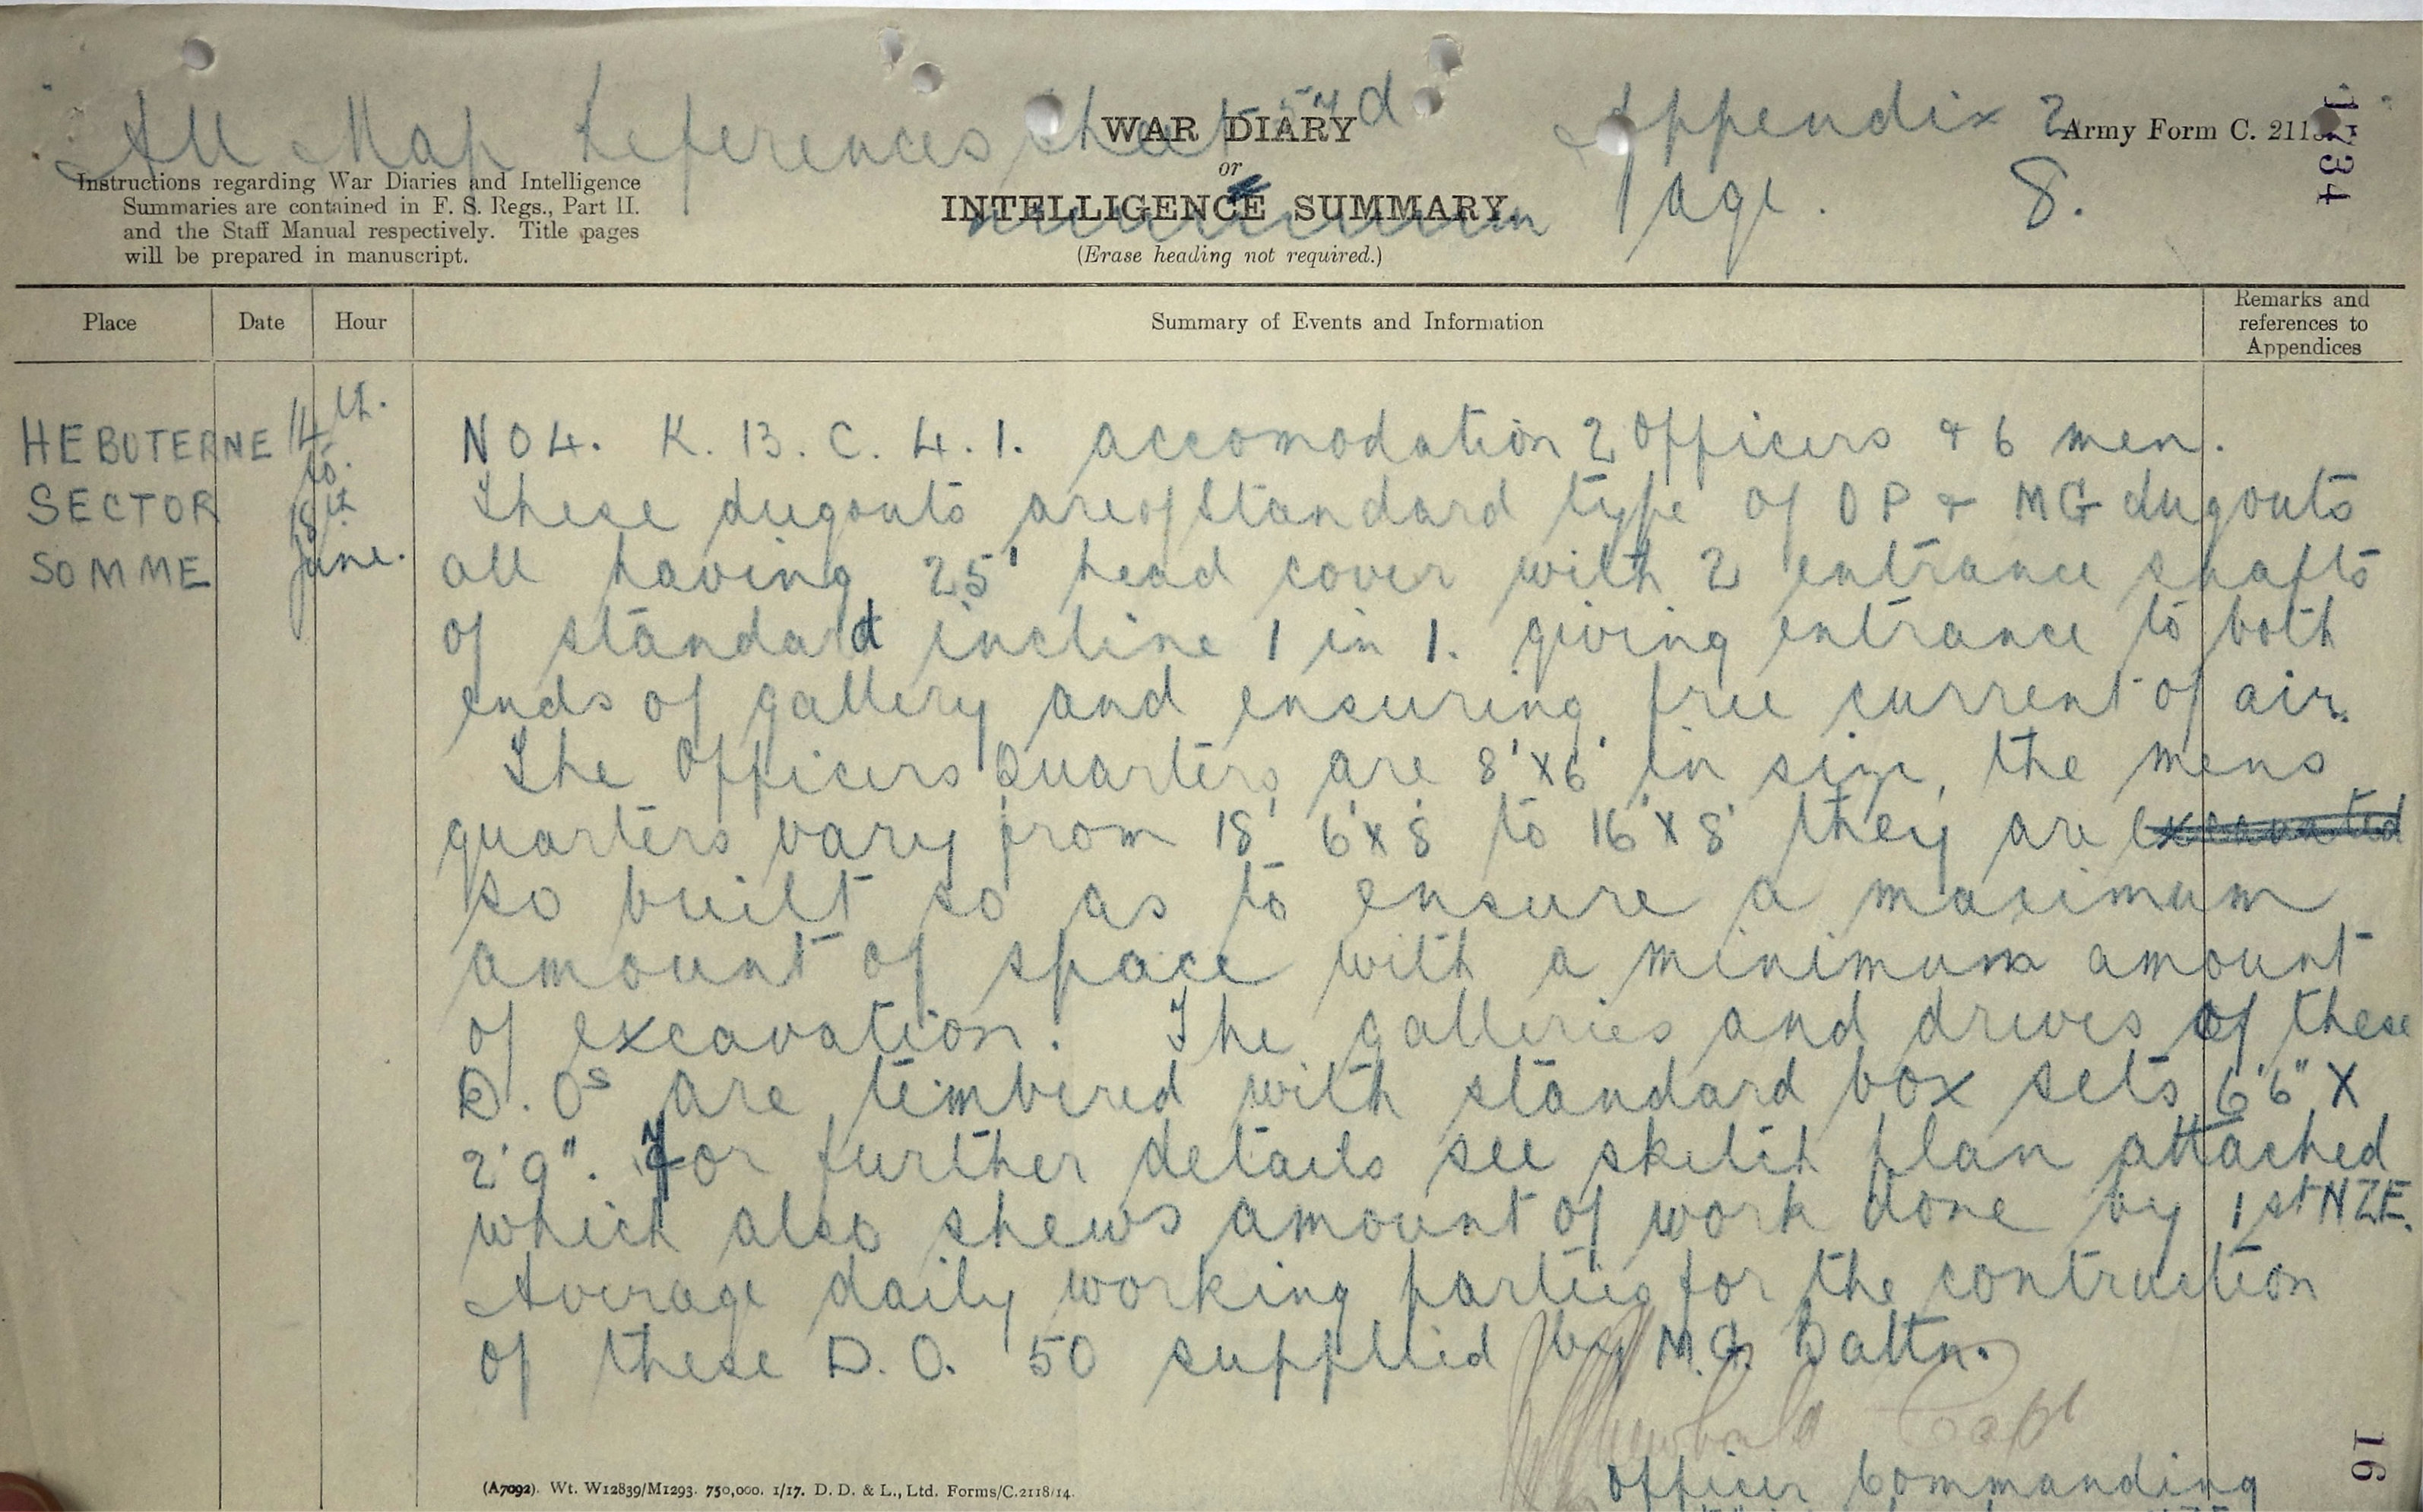 All Map References sheet 57d Appendix 2
WAR DIARY
or
INTELLIGENCE SUMMARY.
(Erase heading not required.)
Army Form C. 2118.
Page. 8.
Instructions regarding War Diaries and Intelligence
Summaries are contained in F. S. Regs., Part II.
and the Staff Manual respectively. Title pages
will be prepared in manuscript.
Place Date Hour Summary of Events and Information Remarks and references to Appendices
HEBUTERNE
SECTOR
SOMME
14th.
to.
18th
June.
NO4. K. 13. C. 4. 1. accomodation 2 Officers & 6 men.
These dugouts are of standard type of OP & MG dugouts
all having 25' head cover with 2 entrance shafts
of standard incline 1 in 1. giving entrance to both
ends of gallery and ensuring free current of air.
The Officers Quarters are 8'x6' in size, the mens
quarters vary from 18' 6'x8' to 16'x8' they are excavated
so built so as to ensure a maximum
amount of space with a minimum amount
of excavation. The galleries and drives of these
D.Os are timbered with standard box sets 6'6" X
2'9". For further details see sketch plan attached
which also shews amount of work done by 1st NZE.
Average daily working parties for the contruction
of these D.O. 50 supplied by M.G. Baltn.
Capt
Officer Commanding
(A7092). Wt. W12839/M1293. 750,000. 1/17. D. D. & L., Ltd. Forms/C.2118/14.
16